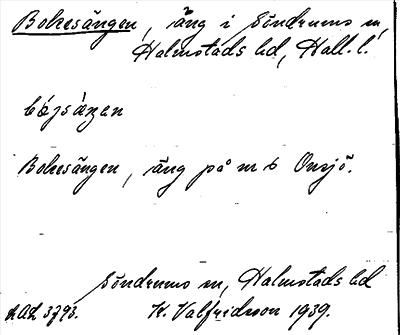 Bokesängen, äng i Söndrums sn,
Halmstads hd, Hall. l.
Bokesängen, äng på nr 6 Onsjö.
Söndrums sn, Halmstads hd
LAL 3793. K. Valfridsson 1939.